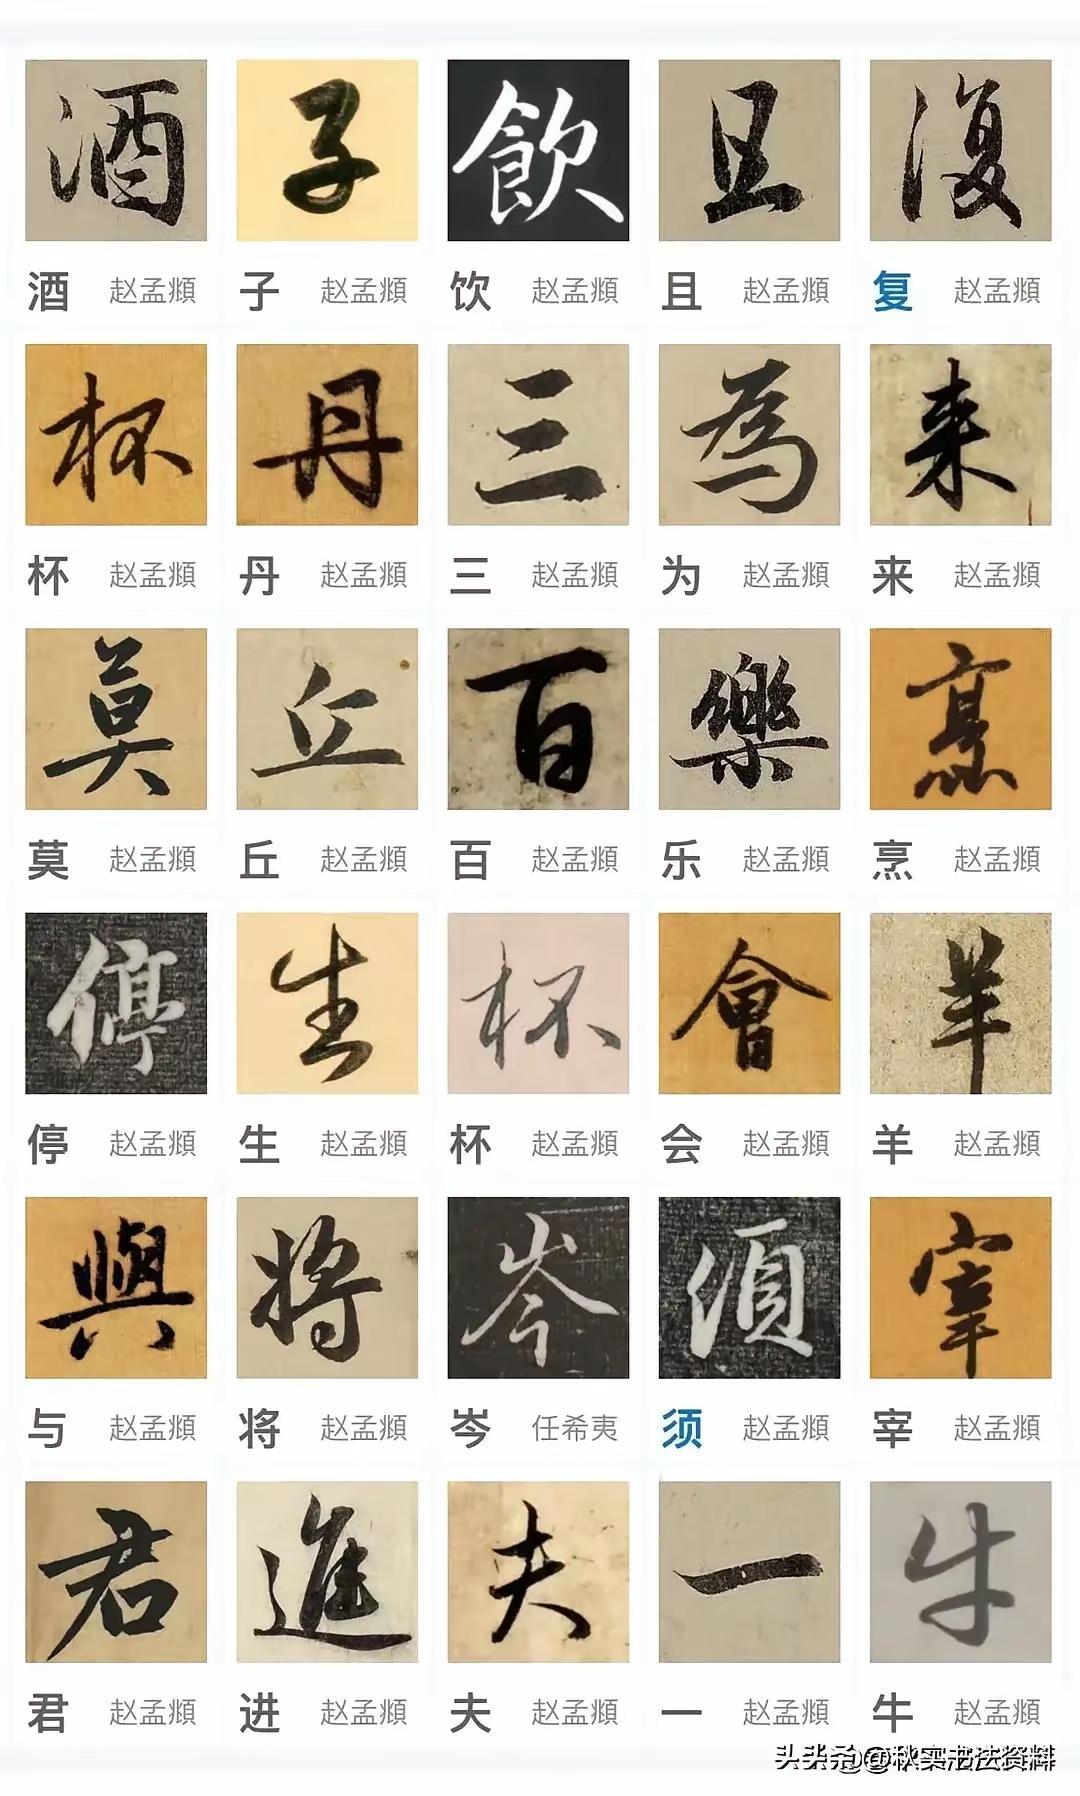 酒 子 飲 且 復
酒 赵孟頫 子 赵孟頫 饮 赵孟頫 且 赵孟頫 复 赵孟頫
杯 丹 三 為 来
杯 赵孟頫 丹 赵孟頫 三 赵孟頫 为 赵孟頫 来 赵孟頫
莫 丘 百 樂 烹
莫 赵孟頫 丘 赵孟頫 百 赵孟頫 乐 赵孟頫 烹 赵孟頫
停 生 杯 會 羊
停 赵孟頫 生 赵孟頫 杯 赵孟頫 会 赵孟頫 羊 赵孟頫
與 将 岑 須 宰
与 赵孟頫 将 赵孟頫 岑 任希夷 须 赵孟頫 宰 赵孟頫
君 進 夫 一 牛
君 赵孟頫 进 赵孟頫 夫 赵孟頫 一 赵孟頫 牛 赵孟頫
头条@秋实书法资料